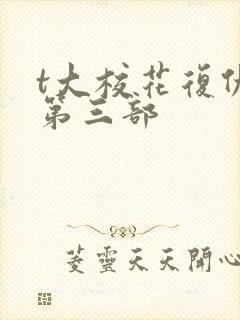 t大校花復仇
第三部
菱靈天天開心